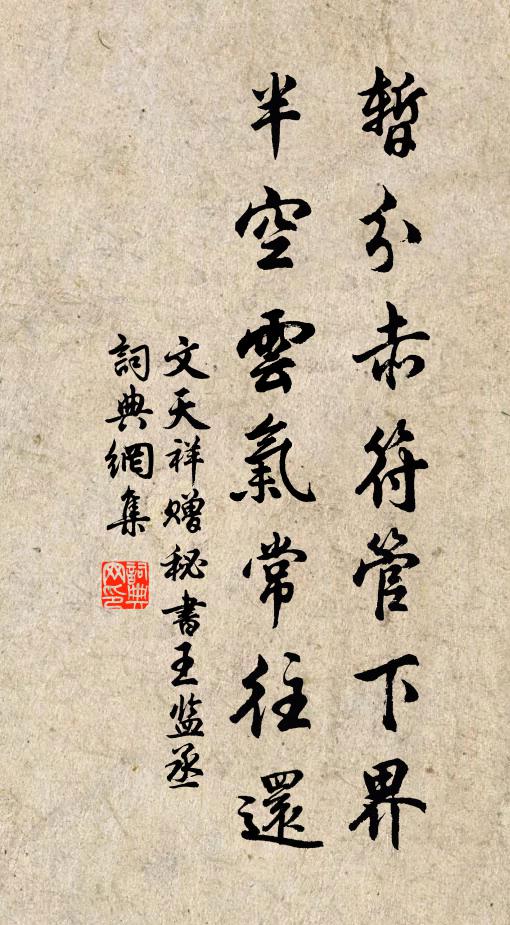 暫分赤符管下界
半空雲氣常往還
文天祥赠秘書王监丞
詞典網集
詞典网印